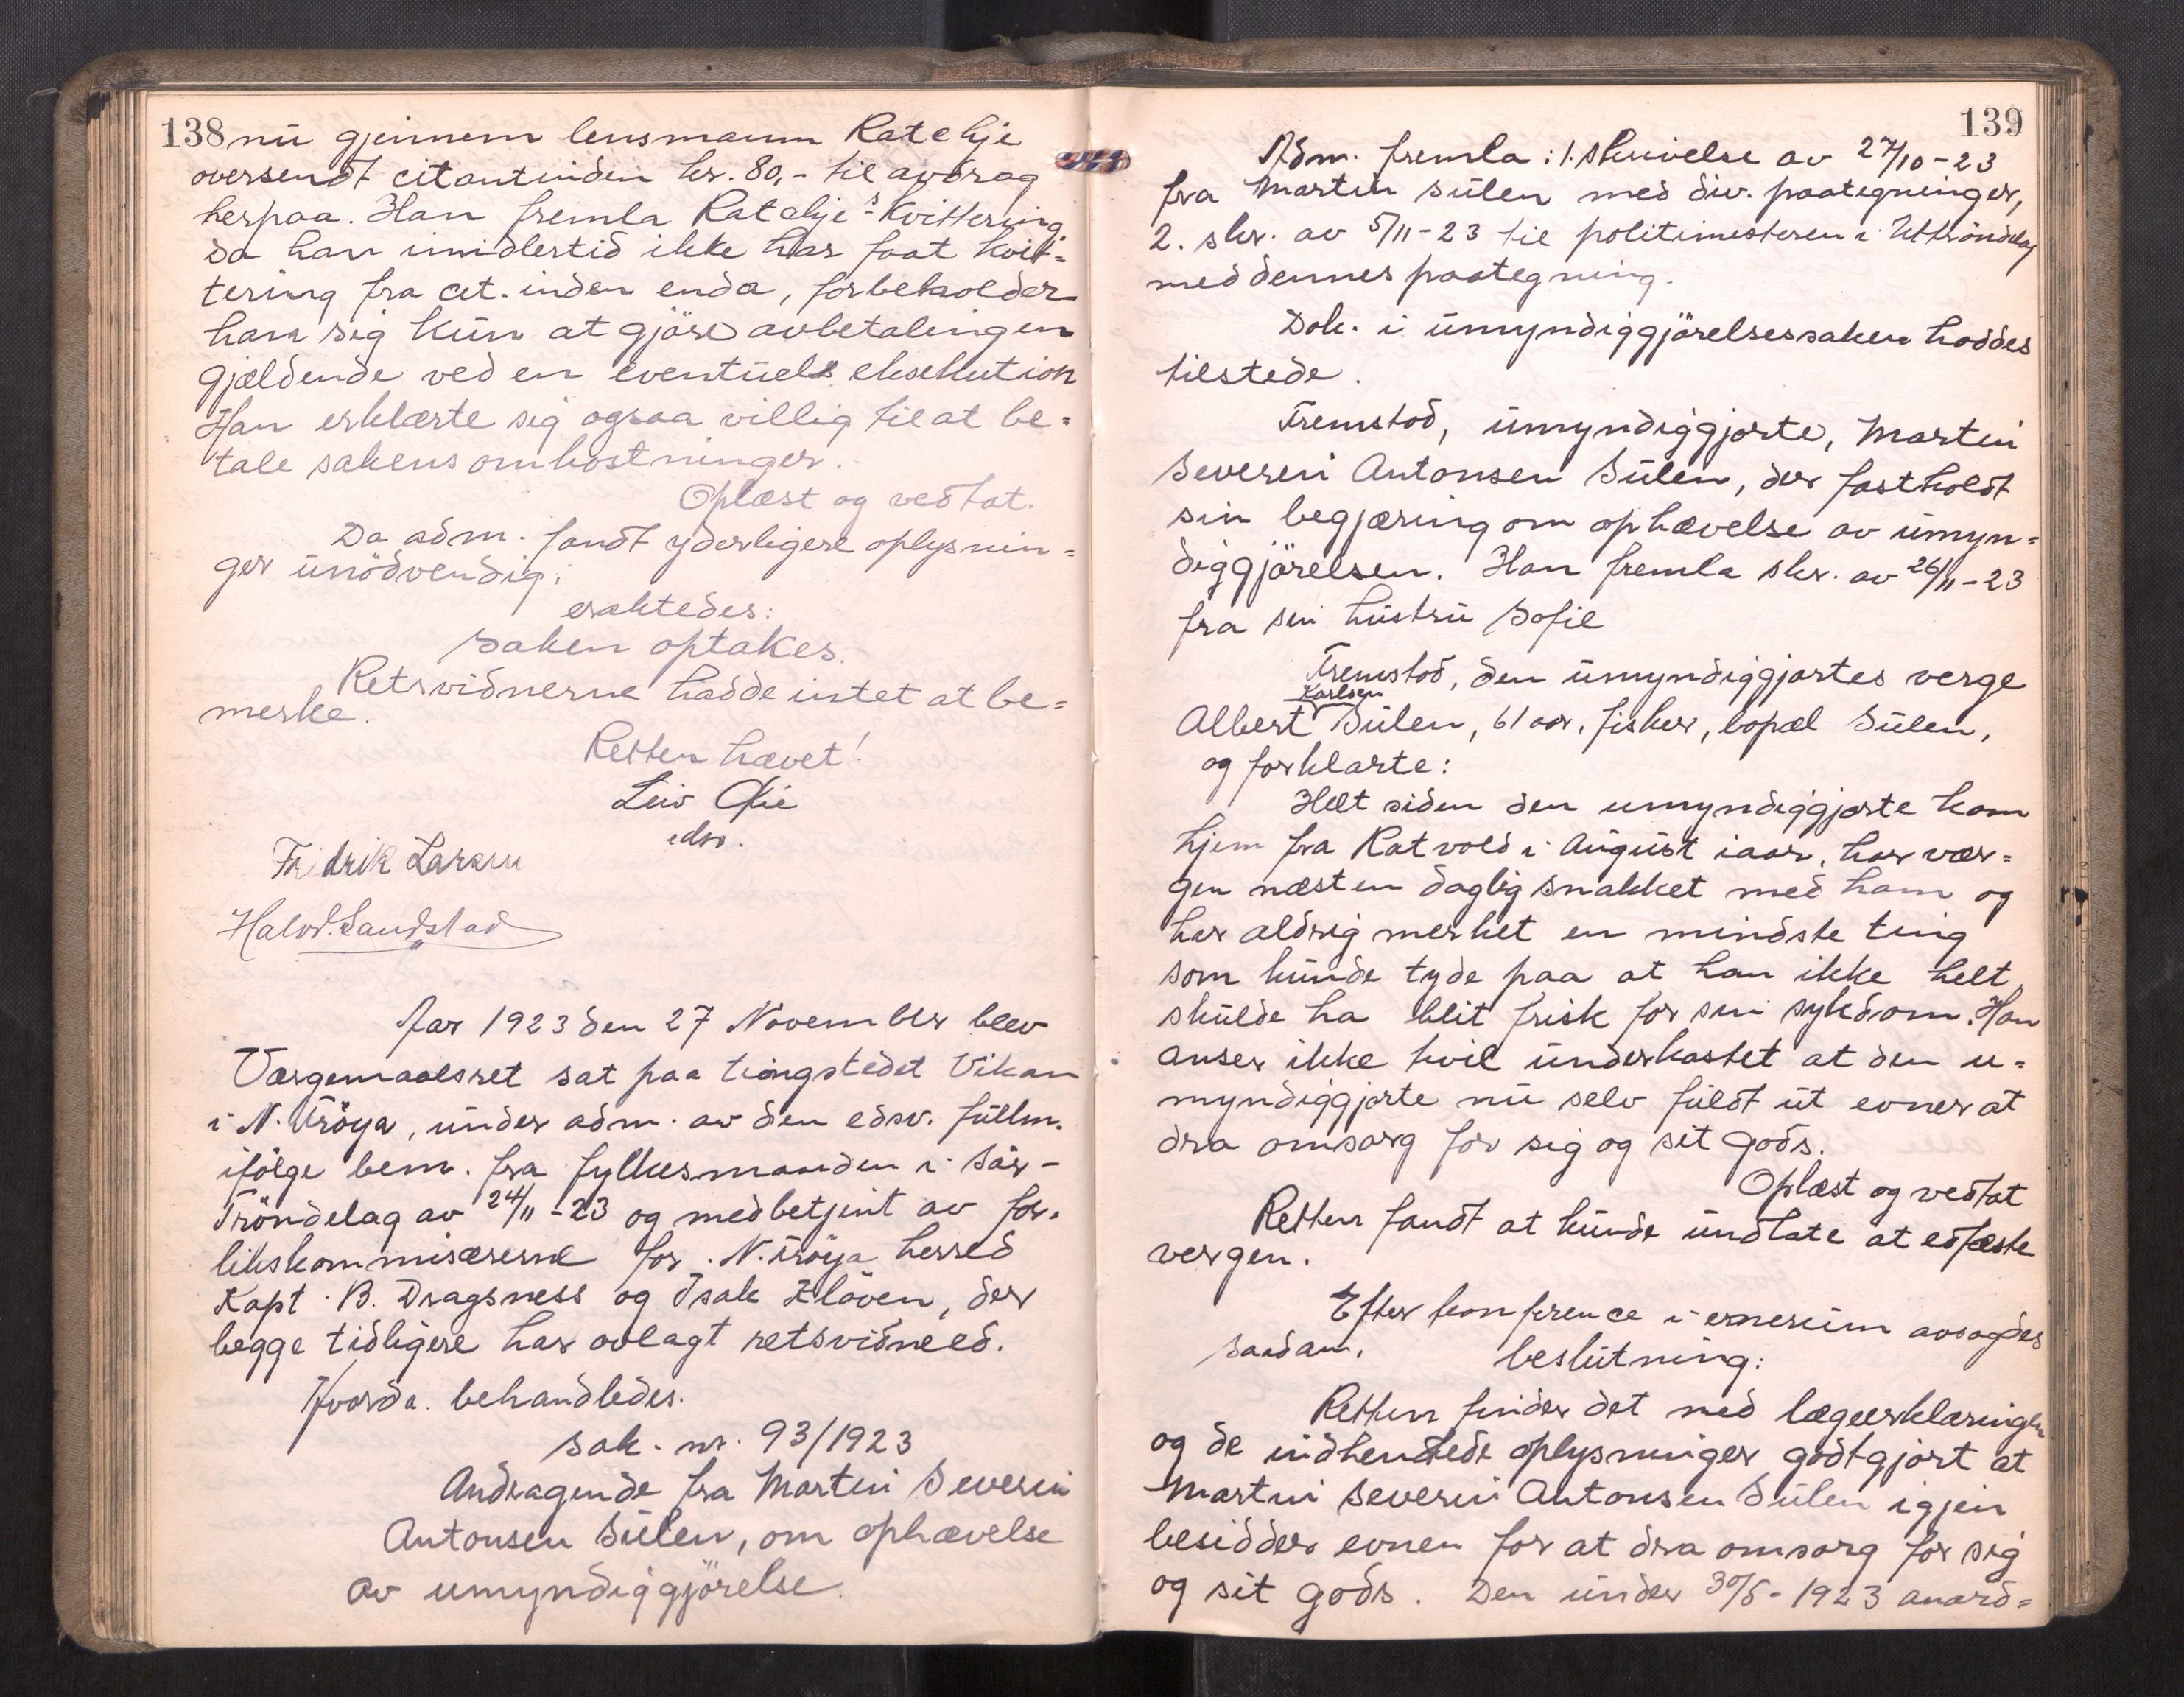 138 nu gjennem lensmann Ratchje
oversendt citantinden kr. 80,- til avdrag
herpaa. Han fremla Ratchje's Kvittering
da han imidlertid ikke har faat kvit=
tering fra cit. inden enda, forbeholder
han sig kun at gjöre avbetalingen
gjeldende ved en eventuel eksekution
Han erklærte sig ogsaa villig til at be=
tale sakens omkostninger.
Oplæst og vedtat.
Da adm. fandt yderligere oplysnin=
ger unödvendig,
eraktedes:
Saken optakes.
Retsvidnerne hadde intet at be=
merke.
Retten hævet!
Leiv
edsv.
Fredrik Larsen
Halvd. Sandstad
Aar 1923 den 27 November blev
Værgemaalsret sat paa tingstedet Vikan
i N. Fröya, under adm. av den edsv. fullm.
ifölge bem. fra fylkesmanden i Sör-
Tröndelag av 24/11-23 og medbetjent av for=
likskommisærerne for N. Fröya herred
Kapt. B. Dragsness og Isak Klöven, der
begge tidligere har avlagt retsvidneed.
Hvorda behandledes.
Sak. nr. 93/1923
Andragende fra Martin Severin
Antonsen Sulen, om ophævelse
av umyndiggjörelse.
139
Adm. fremla: 1. skrivelse av 27/10-23
fra Martin Sulen med div. paategninger,
2. skr. av 5/11-23 til politimesteren i Uttröndelag
med dennes paategning.
Dok. i umyndiggjörelsessaken haddes
tilstede.
Fremstod, umyndiggjorte, Martin
Severin Antonsen Sulen, der fastholdt
sin begjæring om ophævelse av umyn=
diggjörelsen. Han fremla skr. av 26/11-23
fra sin hustru Sofie
Fremstod, den umyndiggjortes verge
Karlsen
Albert Sulen, 61 aar, fisker, bopæl Sulen,
og forklarte:
Helt siden den umyndiggjorte kom
hjem fra Rotvold i August iaar, har vær=
gen næsten daglig snakket med ham og
har aldrig merket en mindste ting
som kunde tyde paa at han ikke helt
skulde ha blit frisk for sin sykdom. Han
anser ikke tvil underkastet at den u=
myndiggjorte nu selv fuldt ut evner at
dra omsorg for sig og sit gods.
Oplæst og vedtat
Retten fandt at kunde undlate at edfæste
vergen.
Efter konference i enerum avsagdes
saadan,
beslutning:
Retten finder det med lægeerklæringen
og de indhentede oplysninger godtgjort at
Martin Severin Antonsen Sulen igjen
besidder evnen for at dra omsorg for sig
og sit gods. Den under 30/5-1923 anord=